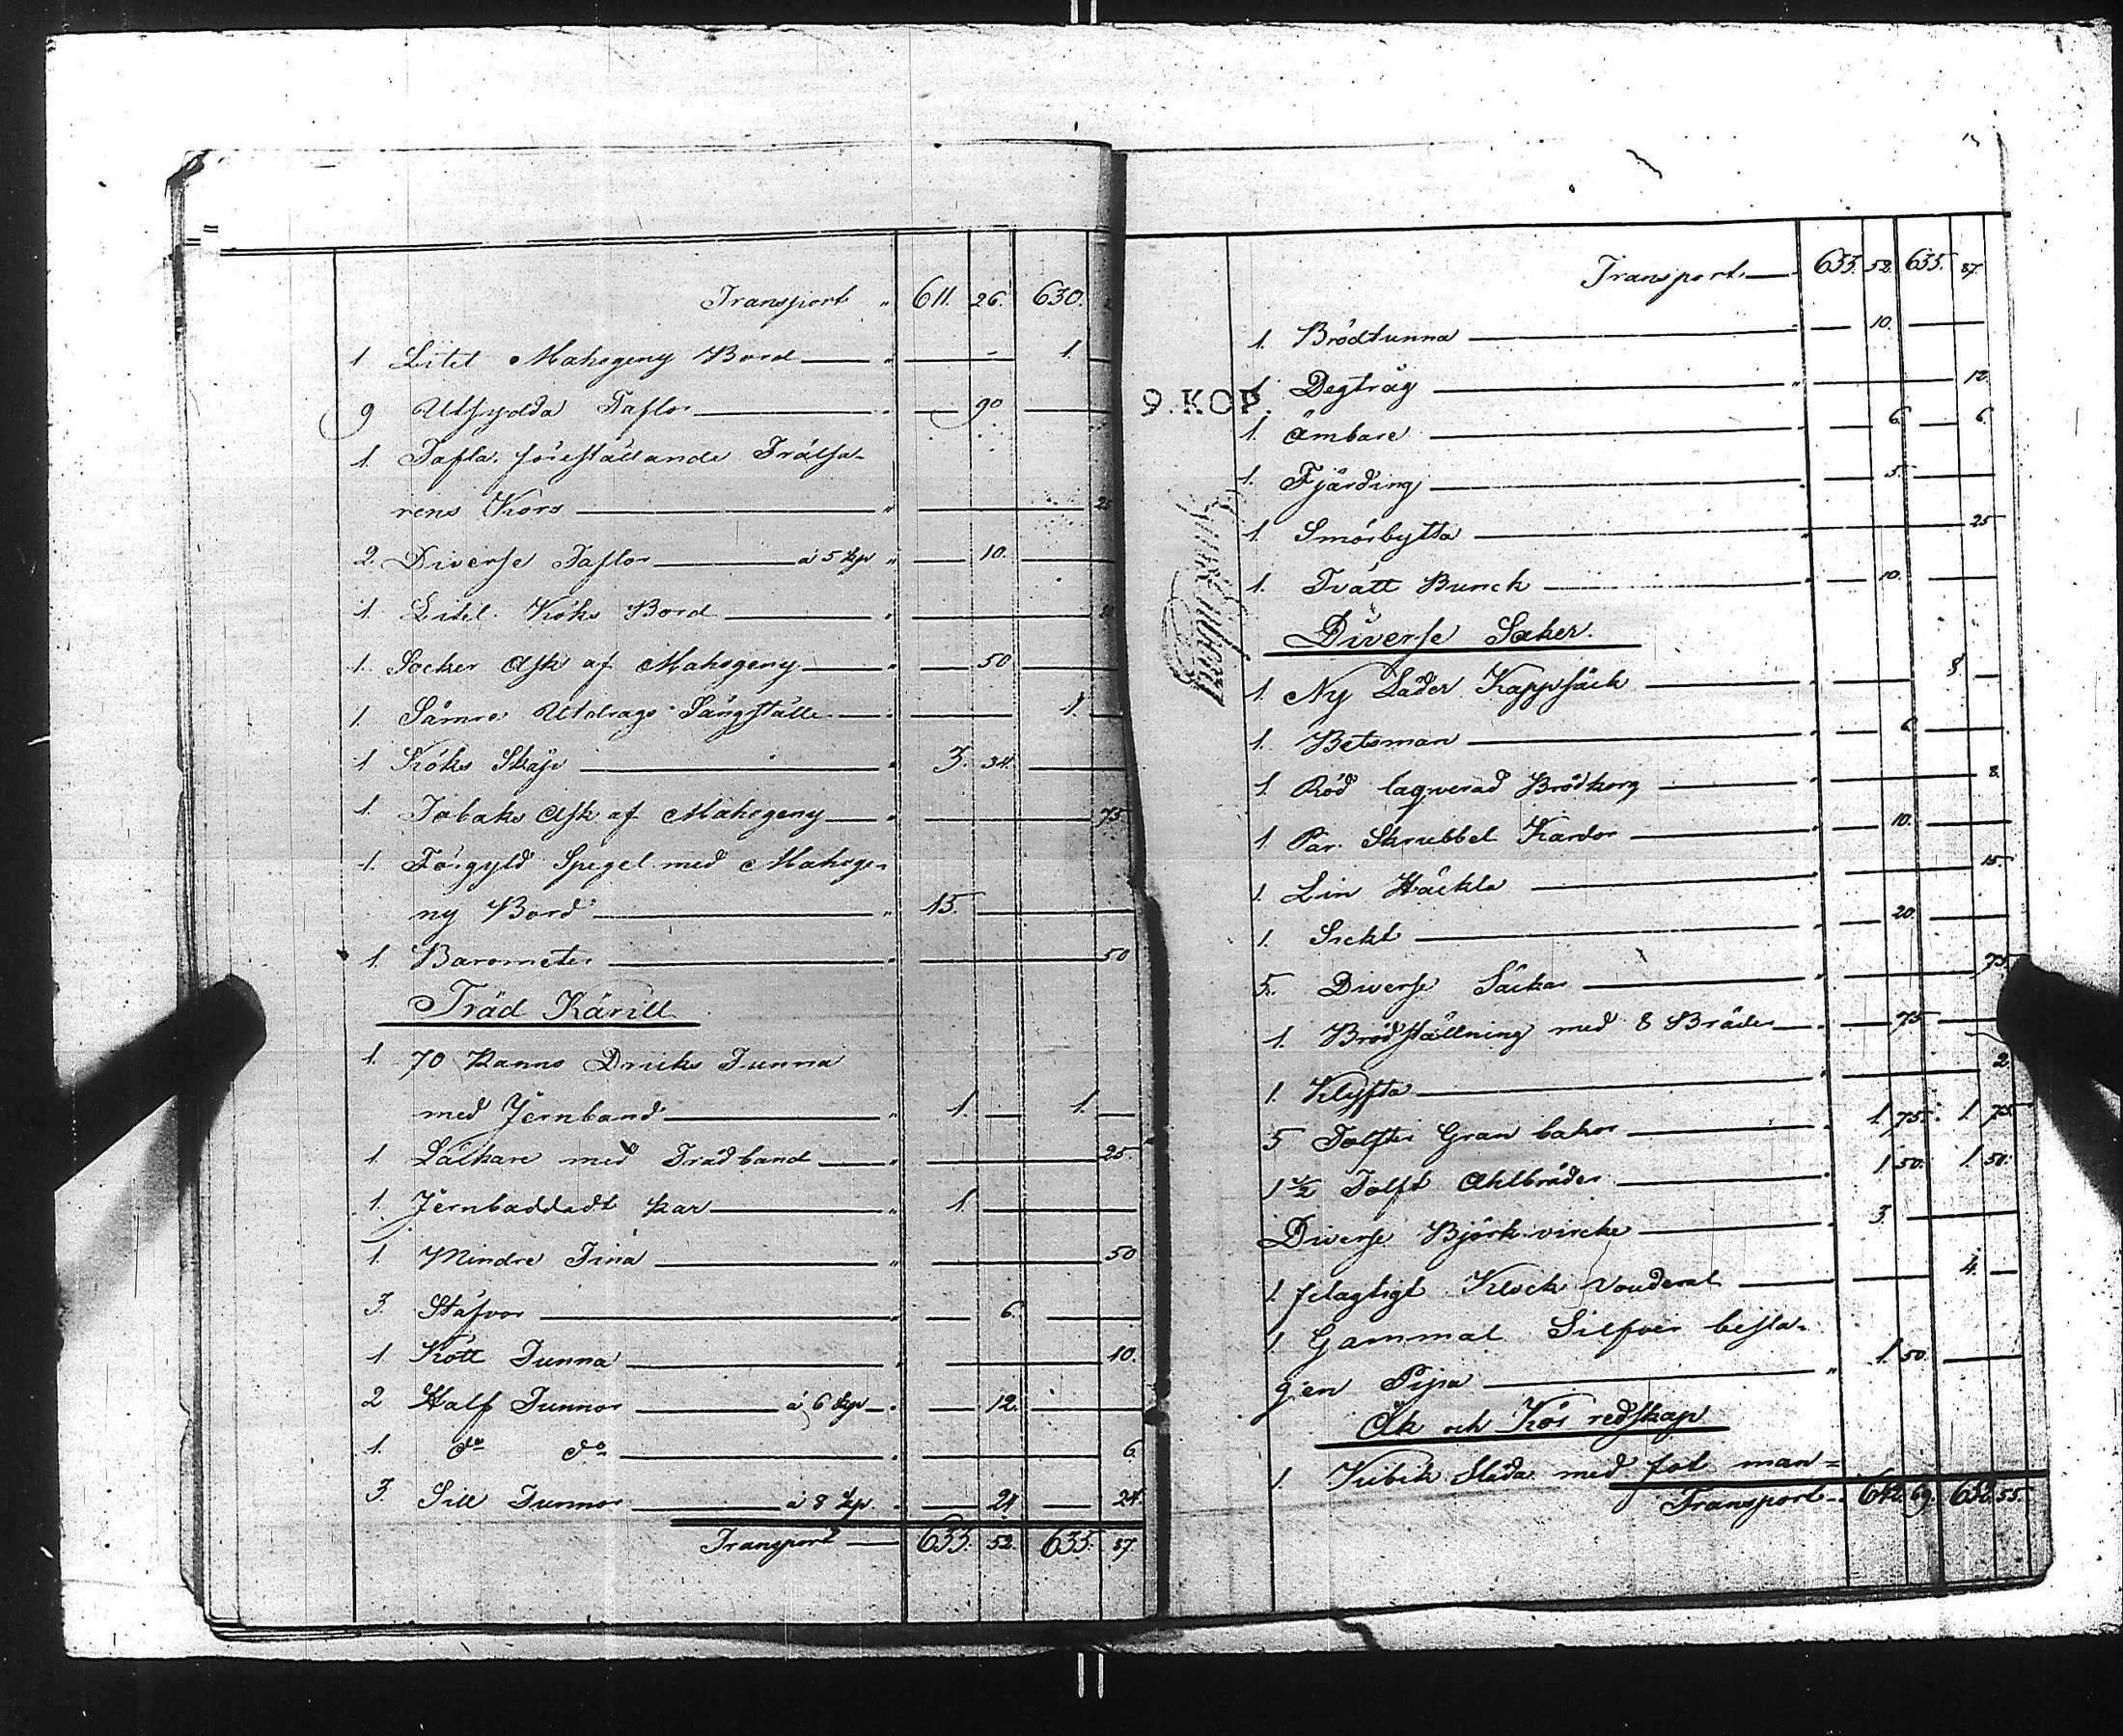 Transport " 611. 26. 630.
1 Litet Mahogeny Bord " — - 1. —
9 Utsydda Taflor " — 90 —
1. Tafla föreställande Frälsa-
rens Kors " — 25
2. Diverse Taflor à 5 kp " — 10. —
1. Litet Köks Bord "
1. Socker Ask af Mahogeny " — 50 —
1. Sämre Utdrags Sängställe " — 1. —
1 Köks Skåp " 3. 34. —
1. Tobaks Ask af Mahogeny " — 75
1. Förgyld Spegel med Mahoge-
ny Bord " 15. —
1. Barometer " — 50
Träd Kärill
1. 70 Kanns Dricks Tunna
med Jernband " 1. — 1. —
1. Läckare med Trädband " — 25.
1. Jernbaddadt Kar " 1. —
1. Mindre Tina " — 50
3. Stäfvor " — 6. —
1 Kött Tunna " — 10.
2 Half Tunnor à 6 kp " — 12. —
1. do do " — 6
3. Sill Tunnor à 8 kp " — 24 — 24.
Transport — 633. 52. 635. 87.
Transport — 633. 52. 635. 87.
1. Brödtunna " — 10. —
9. KOP.
1. Degtråg " — 12.
1. Ämbare 6. — 6.
1. Fjärding " — 5. —
1. Smörbytta " — 25
1. Tvätt Bunck " — 10. —
Diverse Saker.
1. Ny Läder Kappsäck " — 8 —
1. Betsman " — 6 —
1. Röd lagverad Brödkorg " — 8.
1 Par Skrubbel Kardor " — 10. —
1. Lin Häckla " — 15
1. Sickt " — 20. —
5. Diverse Säckar " — 75.
1. Brödställning med 8 Bräder " — 75 —
1. Klyfta " — 2
5 Tolfter Gran bakar " 1. 75. 1 75
1 1/2 Tolft Ahlbräder " 1 50. 1. 50.
Diverse Björk virke " 3. —
1. felagtigt Klock vouderal — 4. —
1. Gammal Silfver besla-
gen Pipa " 1. 50. —
Åk och Kör redskap
1. Kubik Släda med fot man=
Transport — 642. 69. 652. 55.